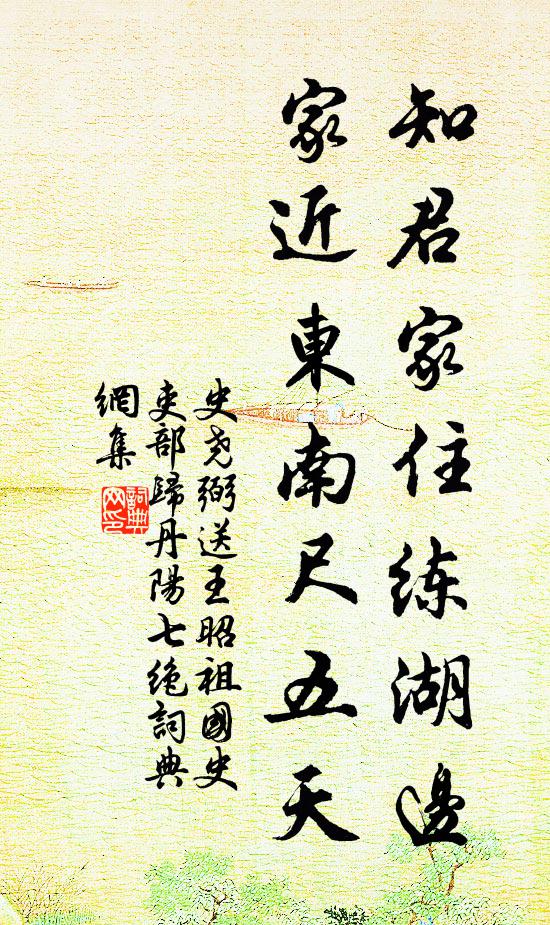 知君家住练湖邊
家近東南尺五天
史尧弼送王昭祖國史
吏部歸丹陽七绝詞典
網集
詞典網印